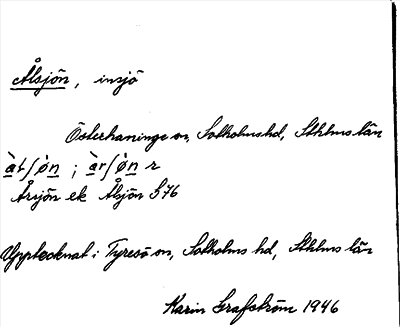 Ålsjön, insjö
Österhaninge sn, Sotholms hd, Sthlms län
Årsjön ek Ålsjön S 76
Upptecknat i Tyresö sn, Sotholms hd, Sthlms län
Karin Grafström 1946